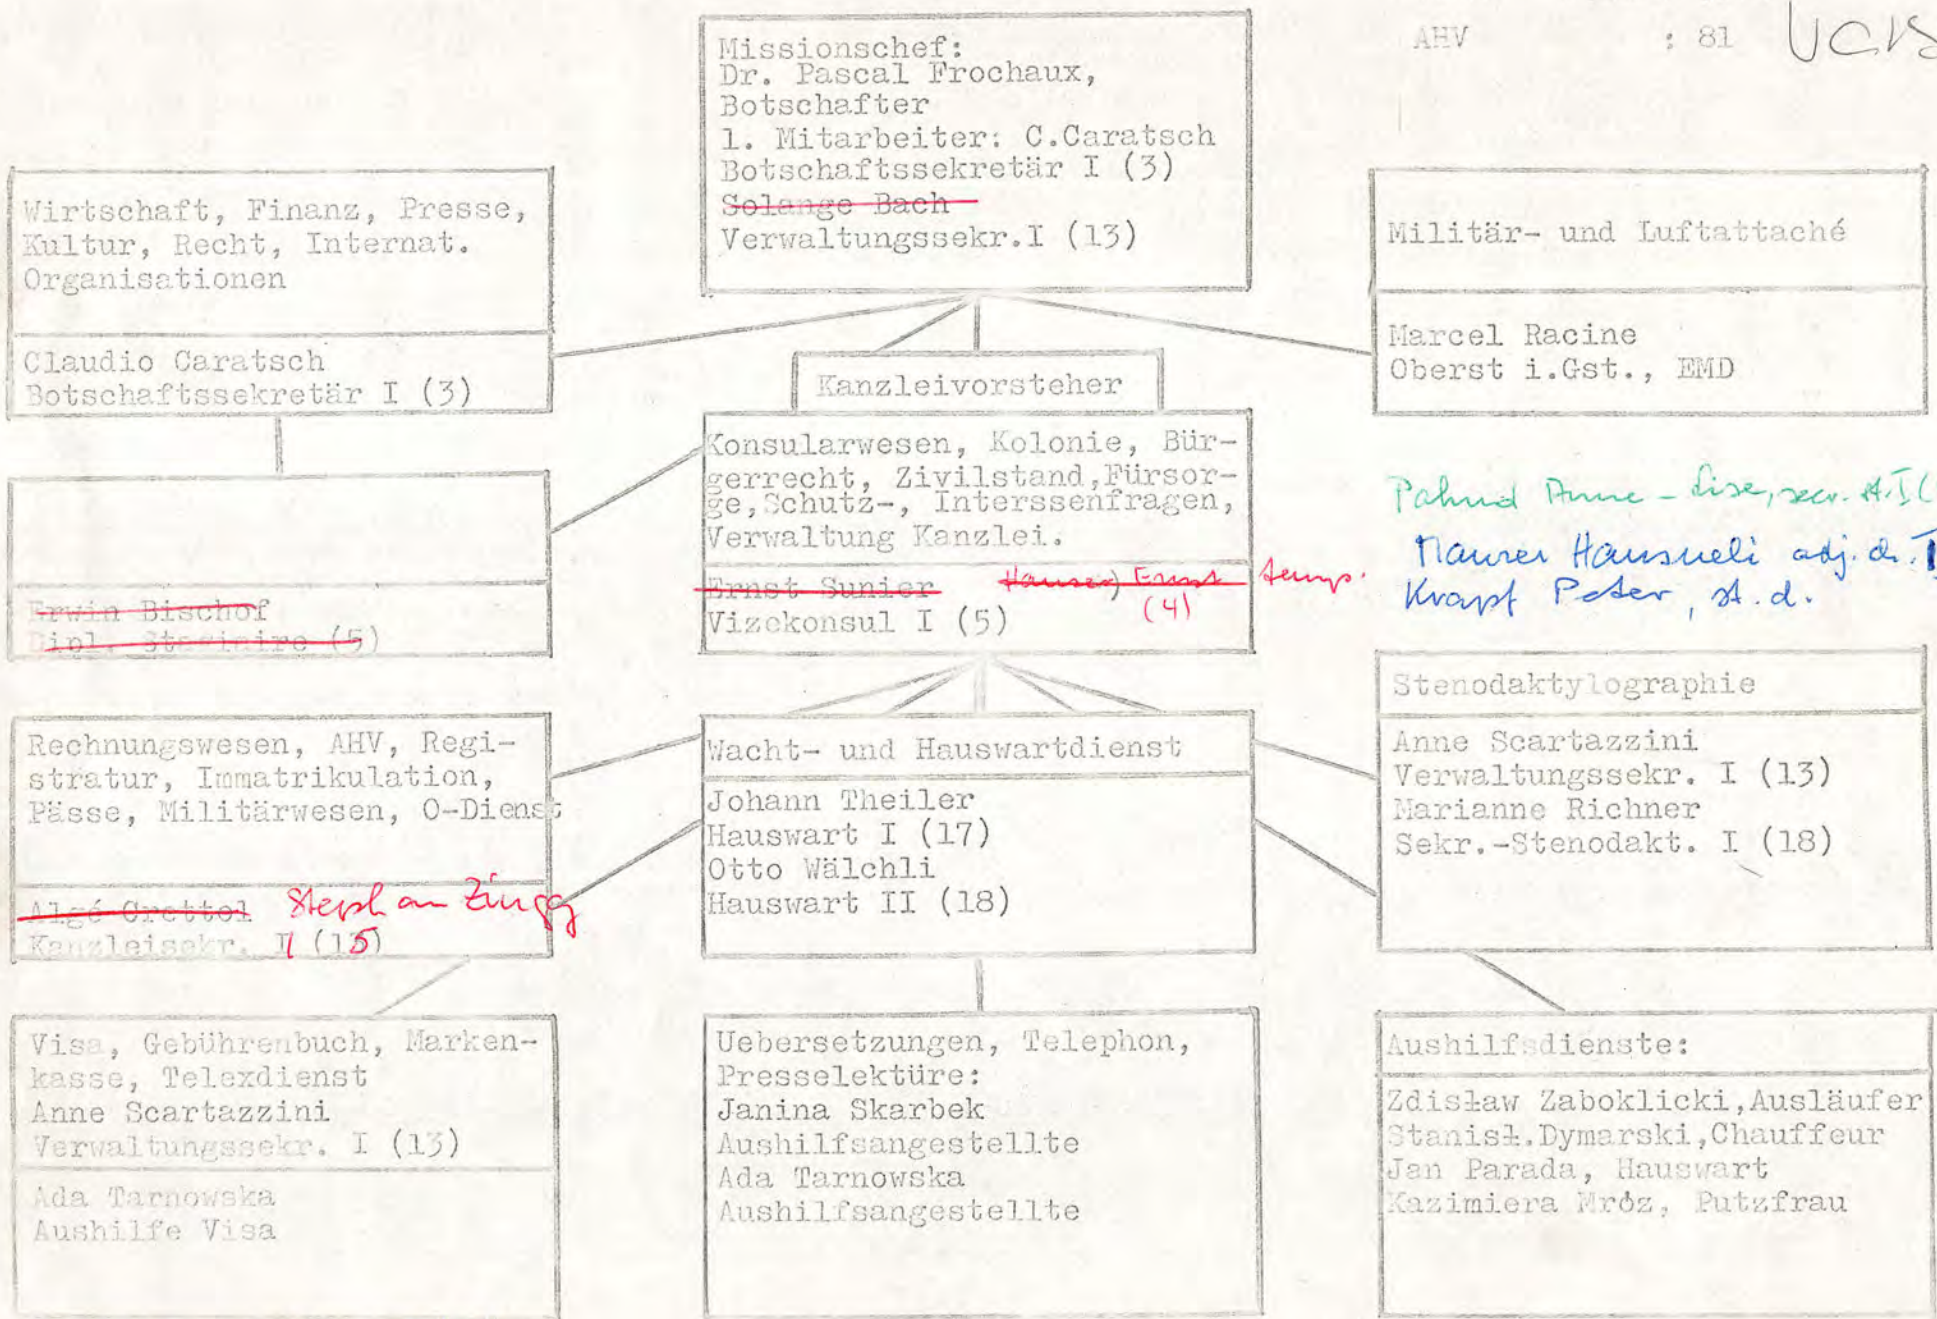 AHV : 81
Missionschef:
Dr. Pascal Frochaux,
Botschafter
1. Mitarbeiter: C.Caratsch
Botschaftssekretär I (3)
Solange Bach
Verwaltungssekr.I (13)
Wirtschaft, Finanz, Presse,
Kultur, Recht, Internat.
Organisationen
Claudio Caratsch
Botschaftssekretär I (3)
Militär- und Luftattaché
Marcel Racine
Oberst i.Gst., EMD
Kanzleivorsteher
Konsularwesen, Kolonie, Bür-
gerrecht, Zivilstand,Fürsor-
ge,Schutz-, Interssenfragen,
Verwaltung Kanzlei.
Ernst Sunier Hauser, Ernst temp.
Vizekonsul I (5) (4)
Erwin Bischof
Dipl. Stagiaire (5)
Pahud Anne-Lise, secr. st. I (
Maurer Hansueli adj. ch.
Krapf Peter, st. d.
Rechnungswesen, AHV, Regi-
stratur, Immatrikulation,
Pässe, Militärwesen, O-Dienst
Algé Crettol Stephan Zingg
Kanzleisekr. (15)
Wacht- und Hauswartdienst
Johann Theiler
Hauswart I (17)
Otto Wälchli
Hauswart II (18)
Stenodaktylographie
Anne Scartazzini
Verwaltungssekr. I (13)
Marianne Richner
Sekr.-Stenodakt. I (18)
Visa, Gebührenbuch, Marken-
kasse, Telexdienst
Anne Scartazzini
Verwaltungssekr. I (13)
Ada Tarnowska
Aushilfe Visa
Uebersetzungen, Telephon,
Presselektüre:
Janina Skarbek
Aushilfsangestellte
Ada Tarnowska
Aushilfsangestellte
Aushilfsdienste:
Zdisław Zaboklicki,Ausläufer
Stanisł.Dymarski,Chauffeur
Jan Parada, Hauswart
Kazimiera Mróz, Putzfrau